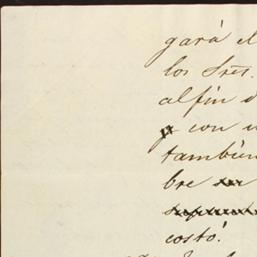 gará el
los Sres.
alfin d
con u
también
bre
costó.